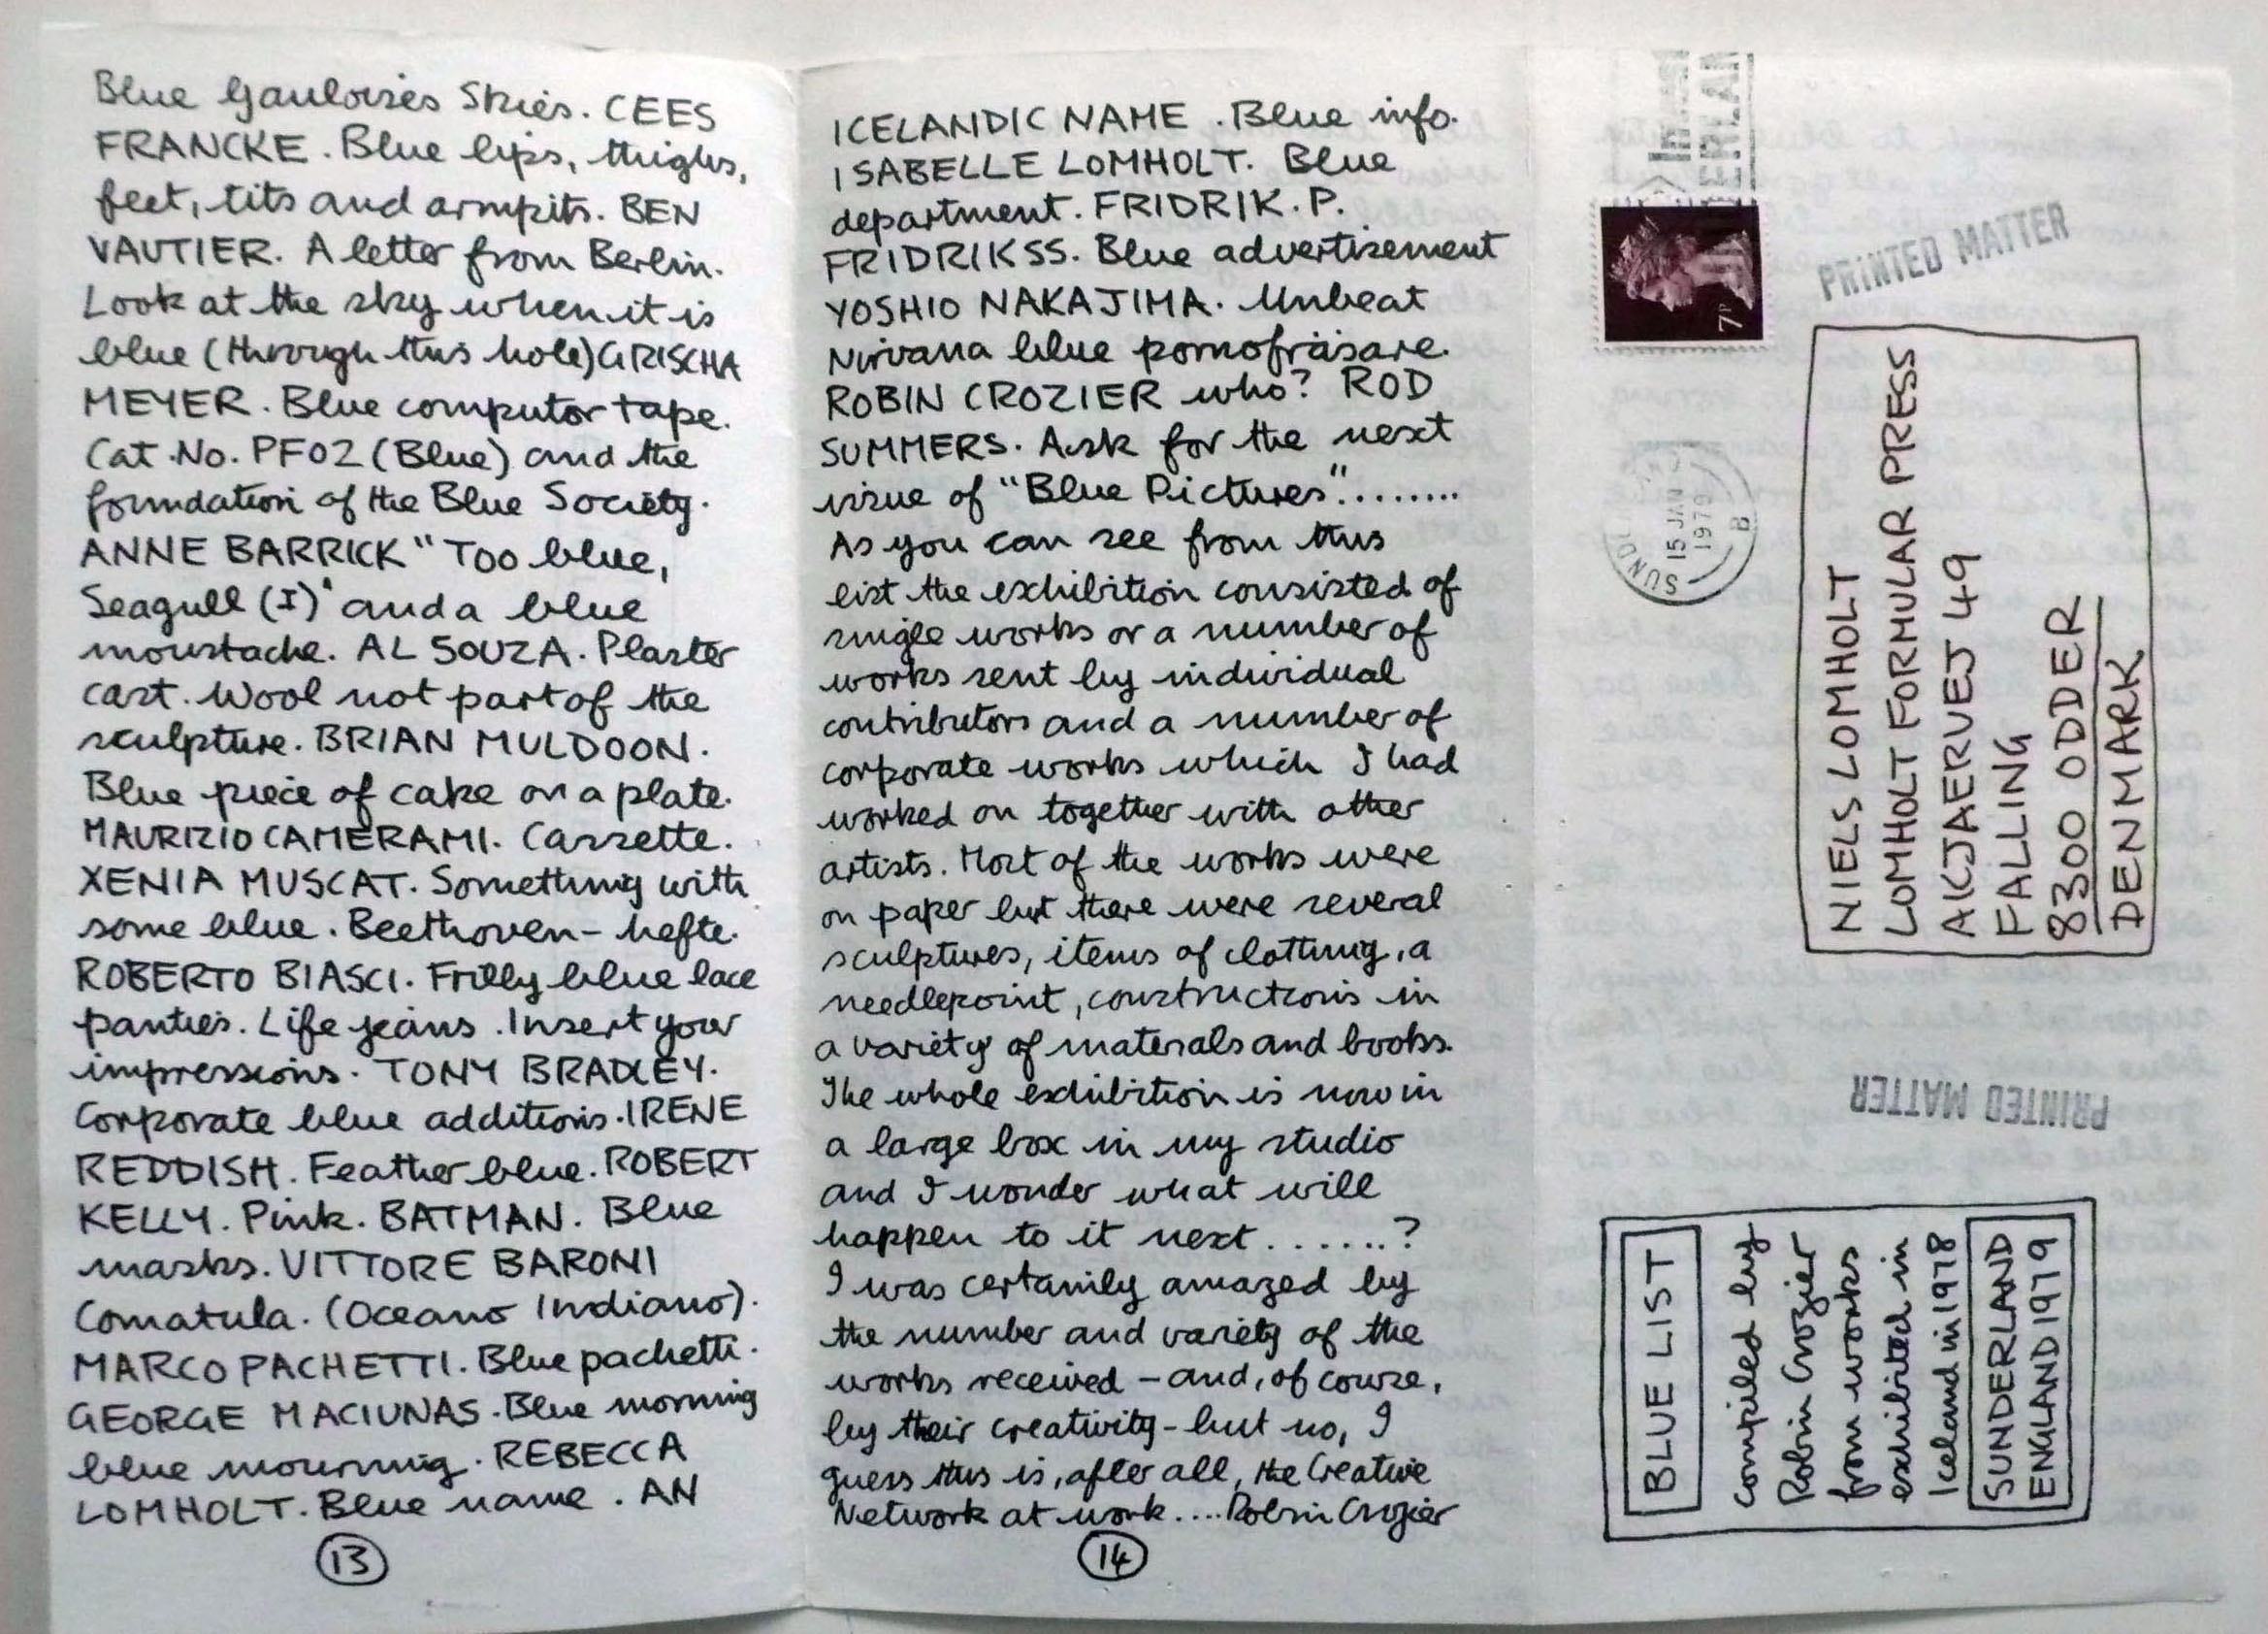 Blue Gauloises Skies. CEES
FRANCKE. Blue lips, thighs,
feet, tits and armpits. BEN
VAUTIER. A letter from Berlin.
Look at the sky when it is
blue (through this hole) GRISCHA
MEYER. Blue computor tape.
Cat.No. PF02 (Blue) and the
foundation of the Blue Society.
ANNE BARRICK "Too blue,
Seagull (I)' and a blue
moustache. AL SOUZA. Plaster
cast. Wool not part of the
sculpture. BRIAN MULDOON.
Blue piece of cake on a plate.
MAURIZIO CAMERAMI. Cassette.
XENIA MUSCAT. Something with
some blue. Beethoven-hefte.
ROBERTO BIASCI. Frilly blue lace
panties. Life jeans. Insert your
impressions. TONY BRADLEY.
Corporate blue additions. IRENE
REDDISH. Feather blue. ROBERT
KELLY. Pink. BATMAN. Blue
masks. VITTORE BARONI
Comatula. (Oceano Indiano).
MARCO PACHETTI. Blue pachetti.
GEORGE MACIUNAS. Blue morning
blue mourning. REBECCA
LOMHOLT. Blue name. AN
13
ICELANDIC NAME. Blue info.
ISABELLE LOMHOLT. Blue
department. FRIDRIK. P.
FRIDRIKSS. Blue advertisement
YOSHIO NAKAJIMA. Unbeat
Nirvana blue pornofräsare.
ROBIN CROZIER who? ROD
SUMMERS. Ask for the next
issue of "Blue Pictures"........
As you can see from this
list the exhibition consisted of
single works or a number of
works sent by individual
contributors and a number of
corporate works which I had
worked on together with other
artists. Most of the works were
on paper but there were several
sculptures, items of clothing, a
needlepoint, constructions in
a variety of materials and books.
The whole exhibition is now in
a large box in my studio
and I wonder what will
happen to it next.......?
I was certainly amazed by
the number and variety of the
works received - and, of course,
by their creativity - but no, I
guess this is, after all, the Creative
Network at work.... Robin Crozier
14
7P
PRINTED MATTER
15 JAN
1979
B
NIELS LOMHOLT
LOMHOLT FORMULAR PRESS
AKJAERVEJ 49
FALLING
8300 ODDER
DENMARK
PRINTED MATTER
BLUE LIST
compiled by
Robin Crozier
from works
exhibited in
Iceland in 1978
SUNDERLAND
ENGLAND 1979